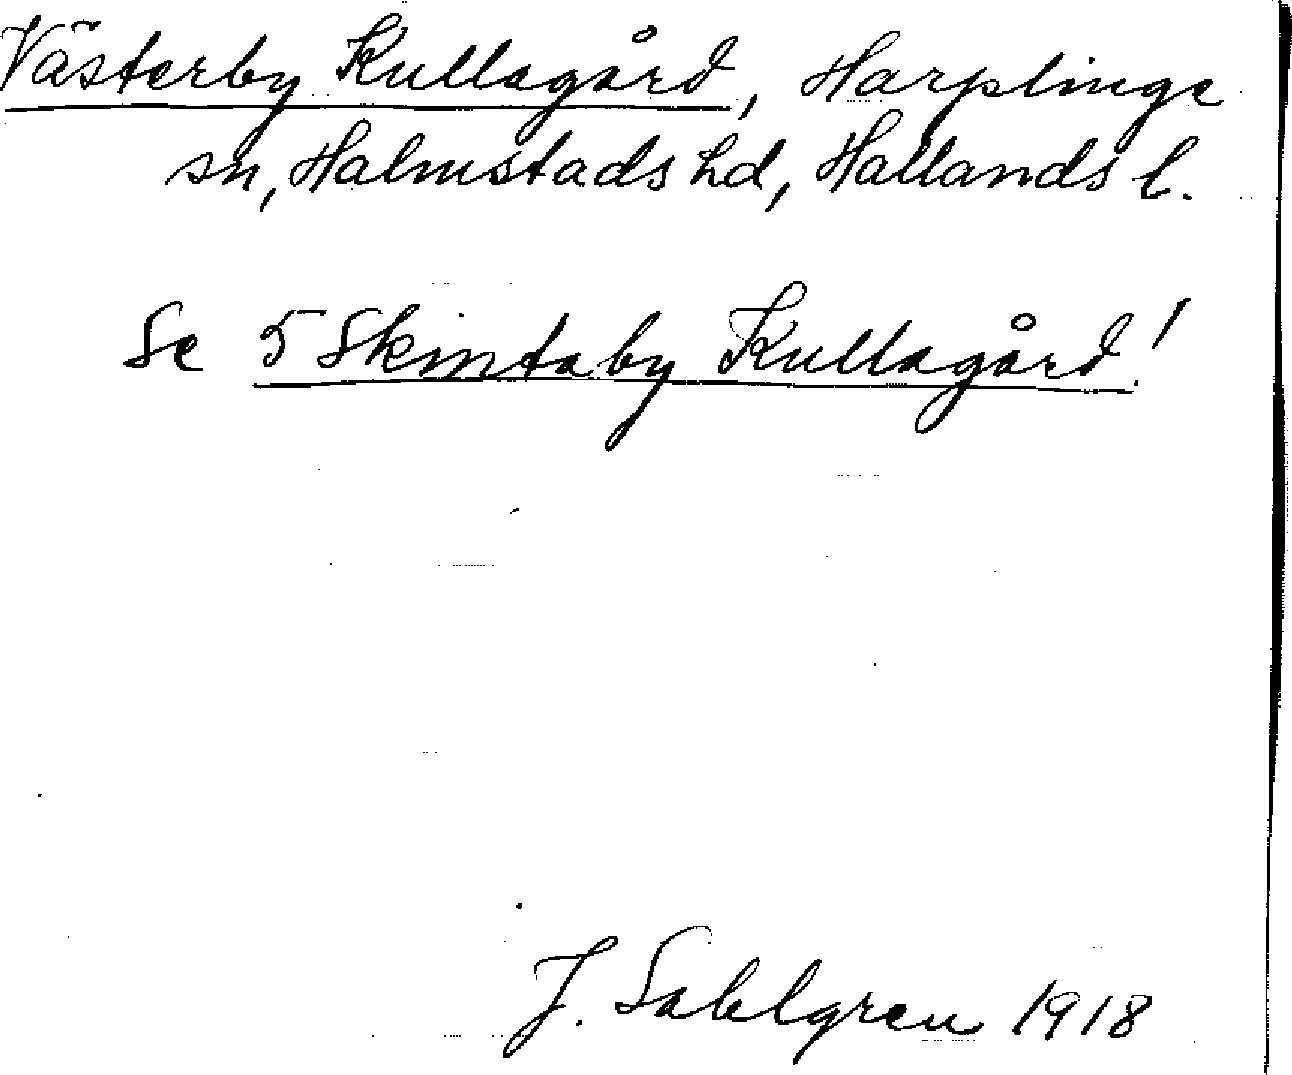 Västerby Kullagård, Harplinge
sn, Halmstads hd, Hallands l.
Se 5 Skintaby Kullagård!
J. Sahlgren 1918